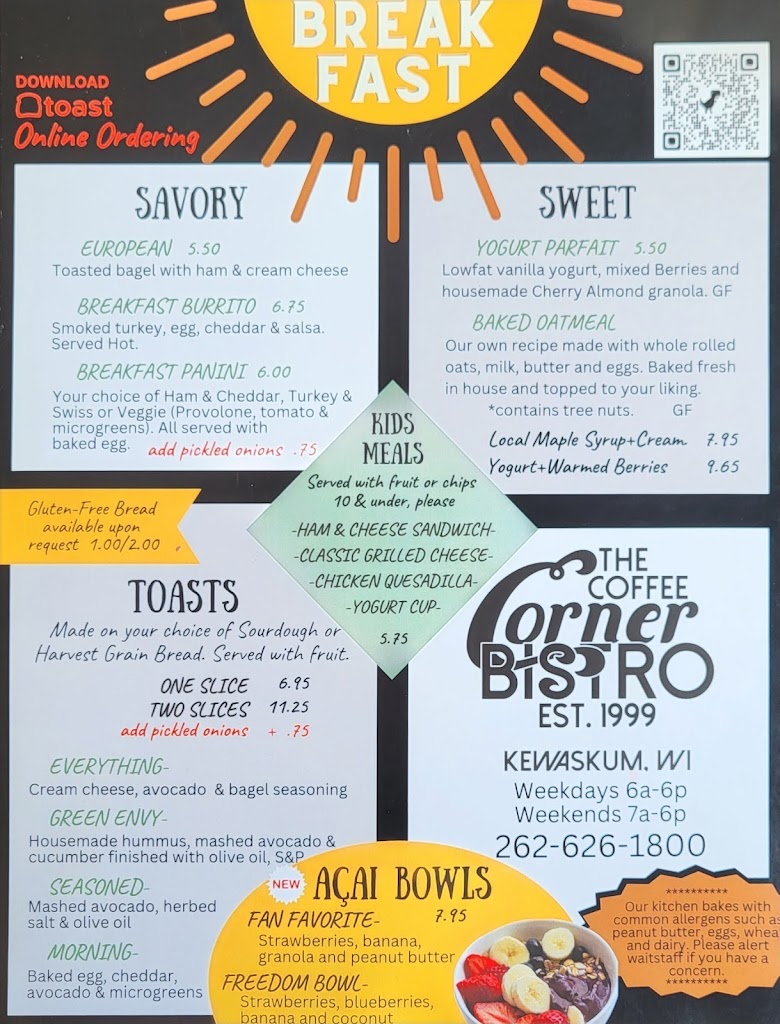 BREAK
FAST
DOWNLOAD
toast
Online Ordering
SAVORY
EUROPEAN 5.50
Toasted bagel with ham & cream cheese
BREAKFAST BURRITO 6.75
Smoked turkey, egg, cheddar & salsa.
Served Hot.
BREAKFAST PANINI 6.00
Your choice of Ham & Cheddar, Turkey &
Swiss or Veggie (Provolone, tomato &
microgreens). All served with
baked egg.
add pickled onions .75
SWEET
YOGURT PARFAIT 5.50
Lowfat vanilla yogurt, mixed Berries and
housemade Cherry Almond granola. GF
BAKED OATMEAL
Our own recipe made with whole rolled
oats, milk, butter and eggs. Baked fresh
in house and topped to your liking.
*contains tree nuts. GF
Local Maple Syrup+Cream 7.95
Yogurt+Warmed Berries 9.65
KIDS
MEALS
Served with fruit or chips
10 & under, please
-HAM & CHEESE SANDWICH-
-CLASSIC GRILLED CHEESE-
-CHICKEN QUESADILLA-
-YOGURT CUP-
5.75
Gluten-Free Bread
available upon
request 1.00/2.00
TOASTS
Made on your choice of Sourdough or
Harvest Grain Bread. Served with fruit.
ONE SLICE 6.95
TWO SLICES 11.25
add pickled onions + .75
EVERYTHING-
Cream cheese, avocado & bagel seasoning
GREEN ENVY-
Housemade hummus, mashed avocado &
cucumber finished with olive oil, S&P
SEASONED-
Mashed avocado, herbed
salt & olive oil
MORNING-
Baked egg, cheddar,
avocado & microgreens
THE
COFFEE
Corner
BISTRO
EST. 1999
KEWASKUM, WI
Weekdays 6a-6p
Weekends 7a-6p
262-626-1800
NEW
AÇAI BOWLS
FAN FAVORITE- 7.95
Strawberries, banana,
granola and peanut butter
FREEDOM BOWL-
Strawberries, blueberries,
banana and coconut
**********
Our kitchen bakes with
common allergens such as
peanut butter, eggs, whea
and dairy. Please alert
waitstaff if you have a
concern.
**********